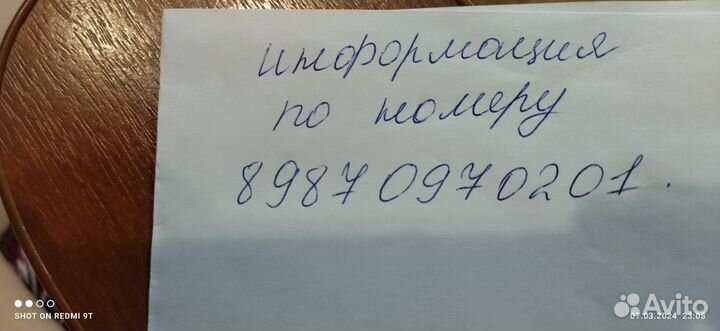 информация
по номеру
89870970201.
SHOT ON REDMI 9T
Avito
07.03.2024 23:08